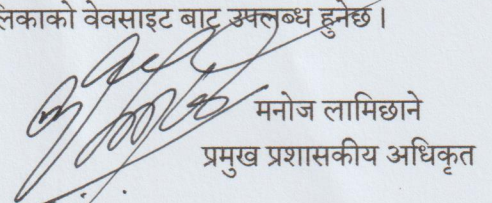 लिकाको वेवसाइट बाट उपलब्ध हुनेछ।
मनोज लामिछाने
प्रमुख प्रशासकीय अधिकृत